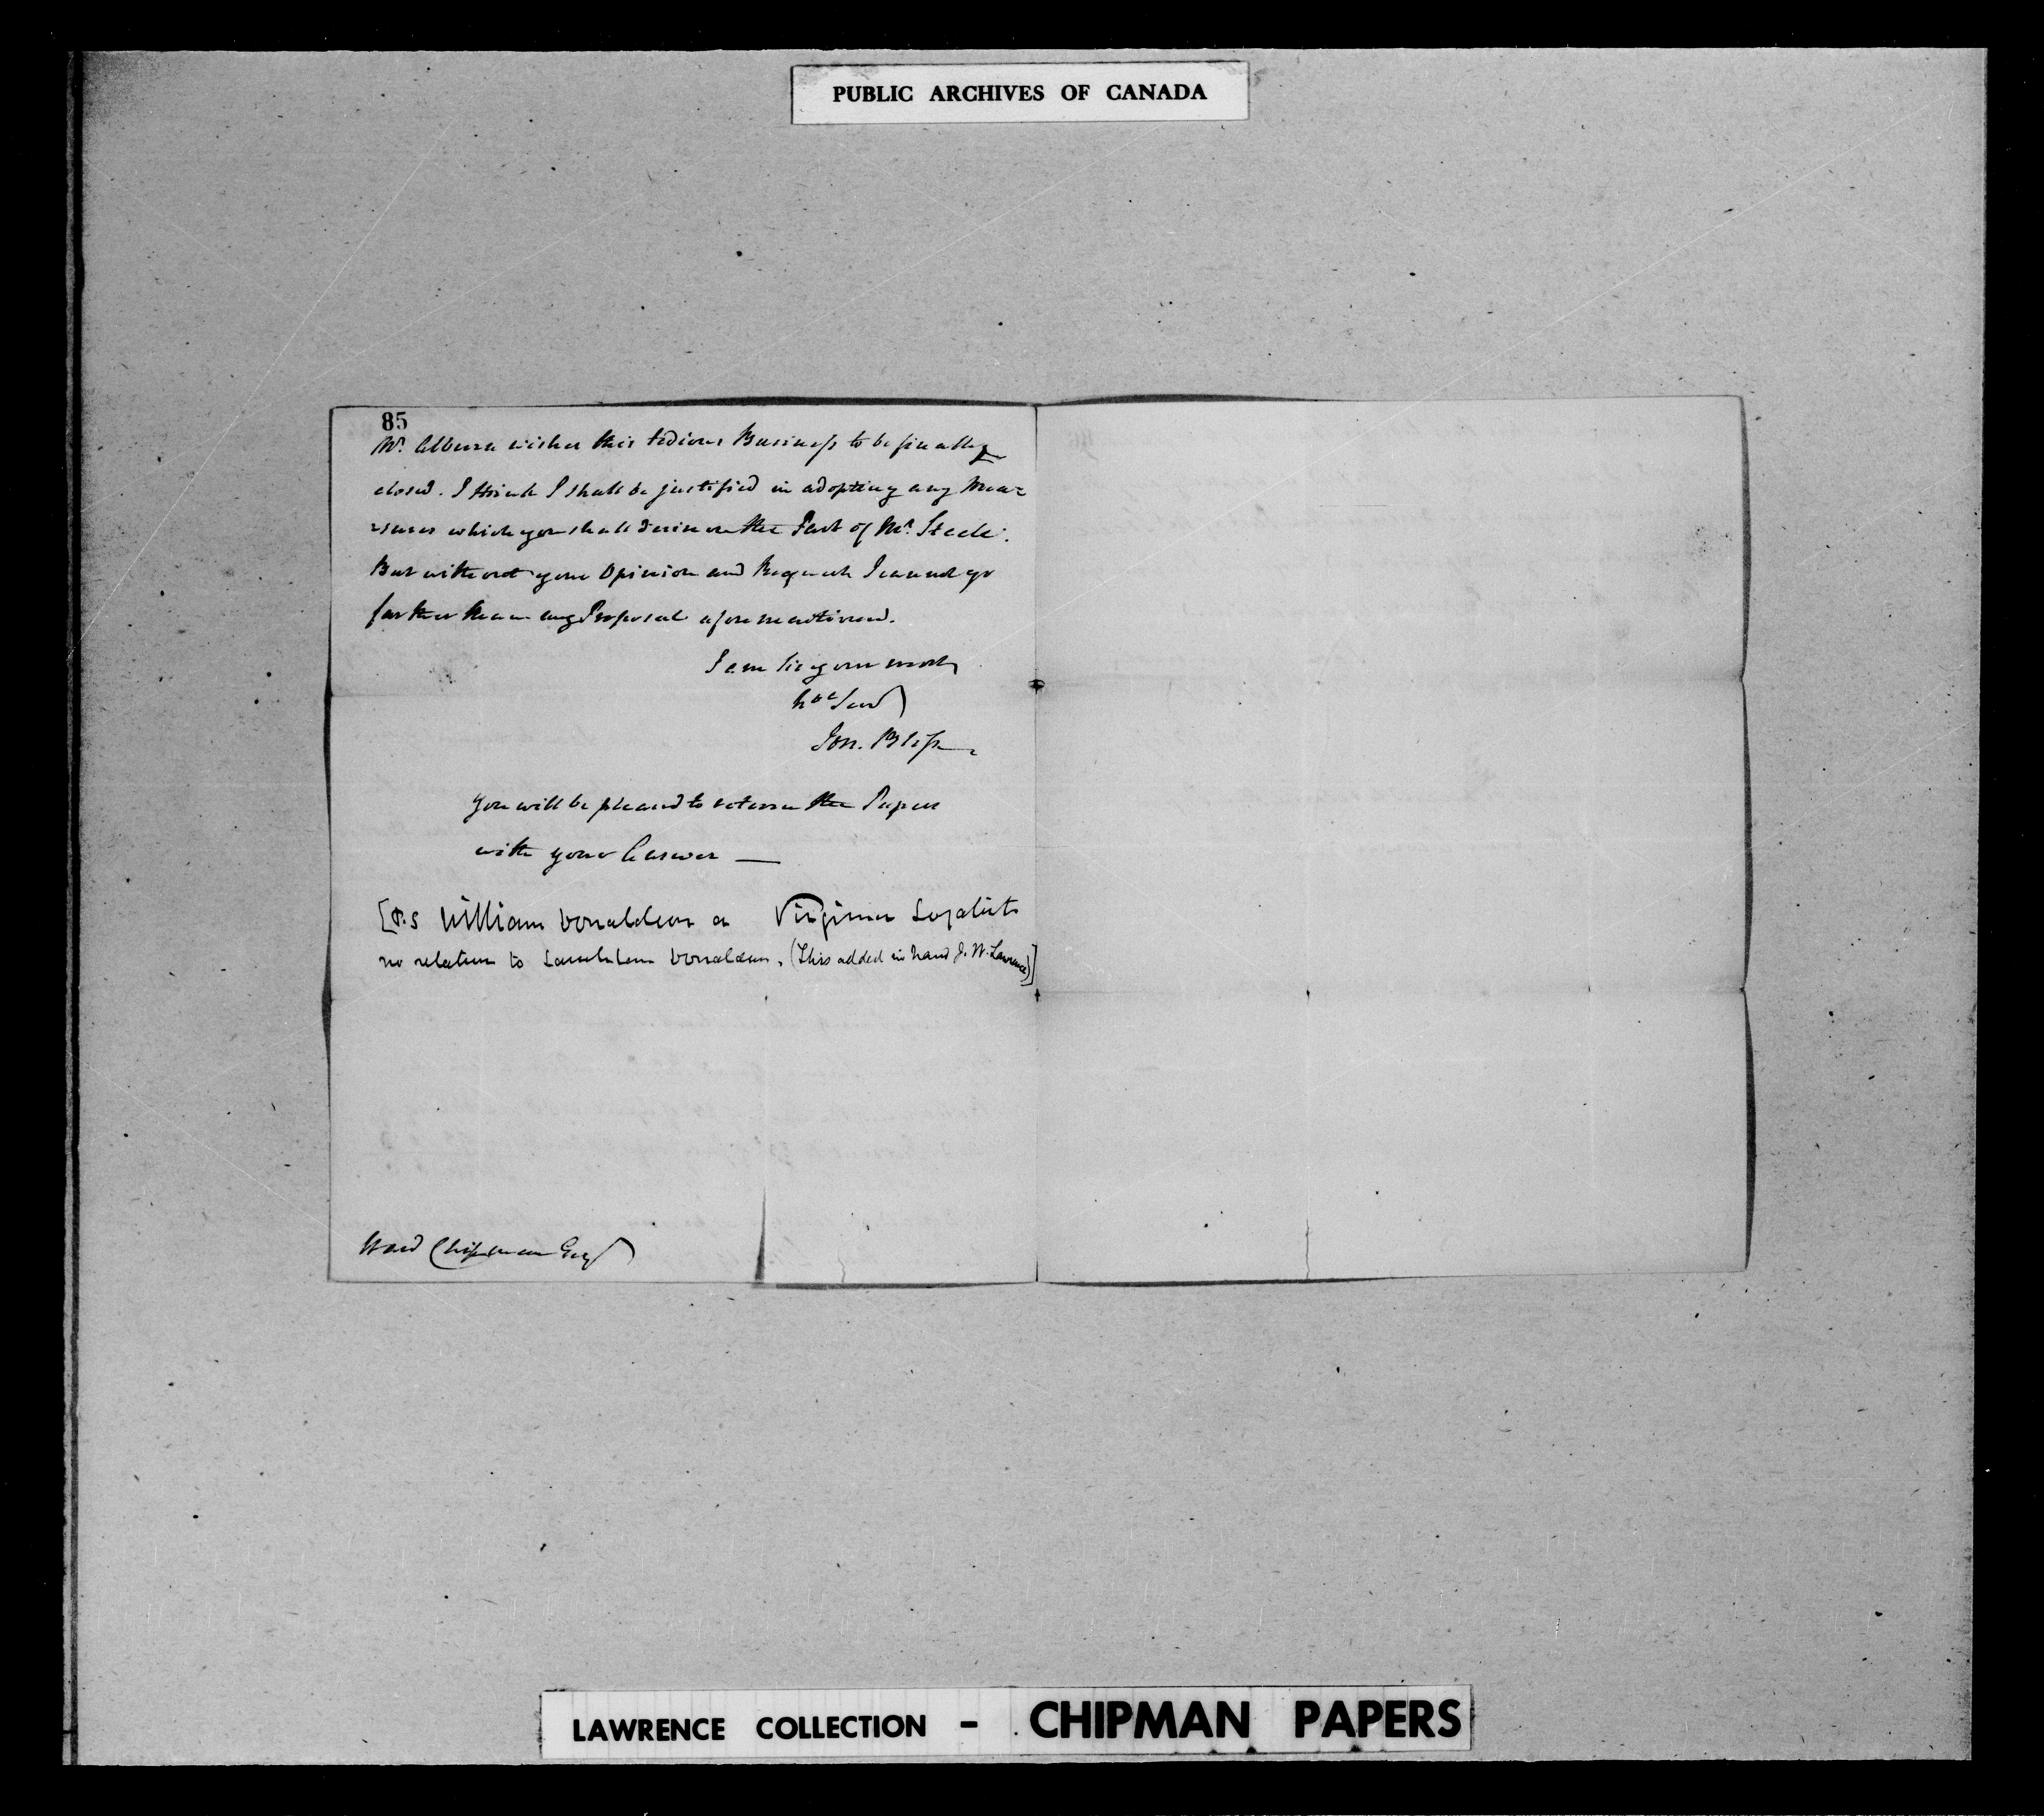 PUBLIC ARCHIVES OF CANADA
85
Mr. wishes this tedious Business to be finally
closed. I think I shall be justified in adopting any Mea-
-sures which you shall desire on the Part of Mr. Steele.
But without your Opinion and Request I cannot go
farther than my Proposal aforementioned.
I am Sir your most
hble Servt
Jon. Bliss
You will be pleased to return the Papers
with your Answer —
[P.S William Donaldson a Virginia Loyalist
no relation to Donaldson. (This added in hand J. W. Lawrence)]
Ward Chipman Esqr
LAWRENCE COLLECTION - CHIPMAN PAPERS